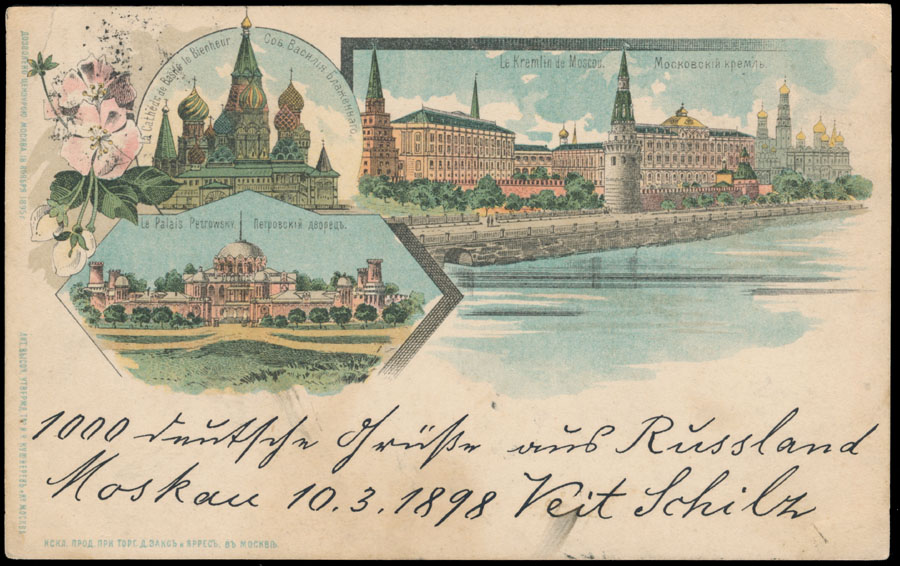 La Cathédr. de Basile le Bienheur.
Соб. Василія Блаженнаго.
Le Kremlin de Moscou.
Московскій кремль.
Le Palais Petrowsky.
Петровскій дворецъ.
1000 deutsche Grüße aus Russland
Moskau 10.3.1898 Veit Schilz
ИСКЛ. ПРОД. ПРИ ТОРГ. Д. ЗАКСЪ и ЯРРЕСЪ, ВЪ МОСКВѢ.
ДОЗВОЛЕНО ЦЕНЗУРОЮ МОСКВА